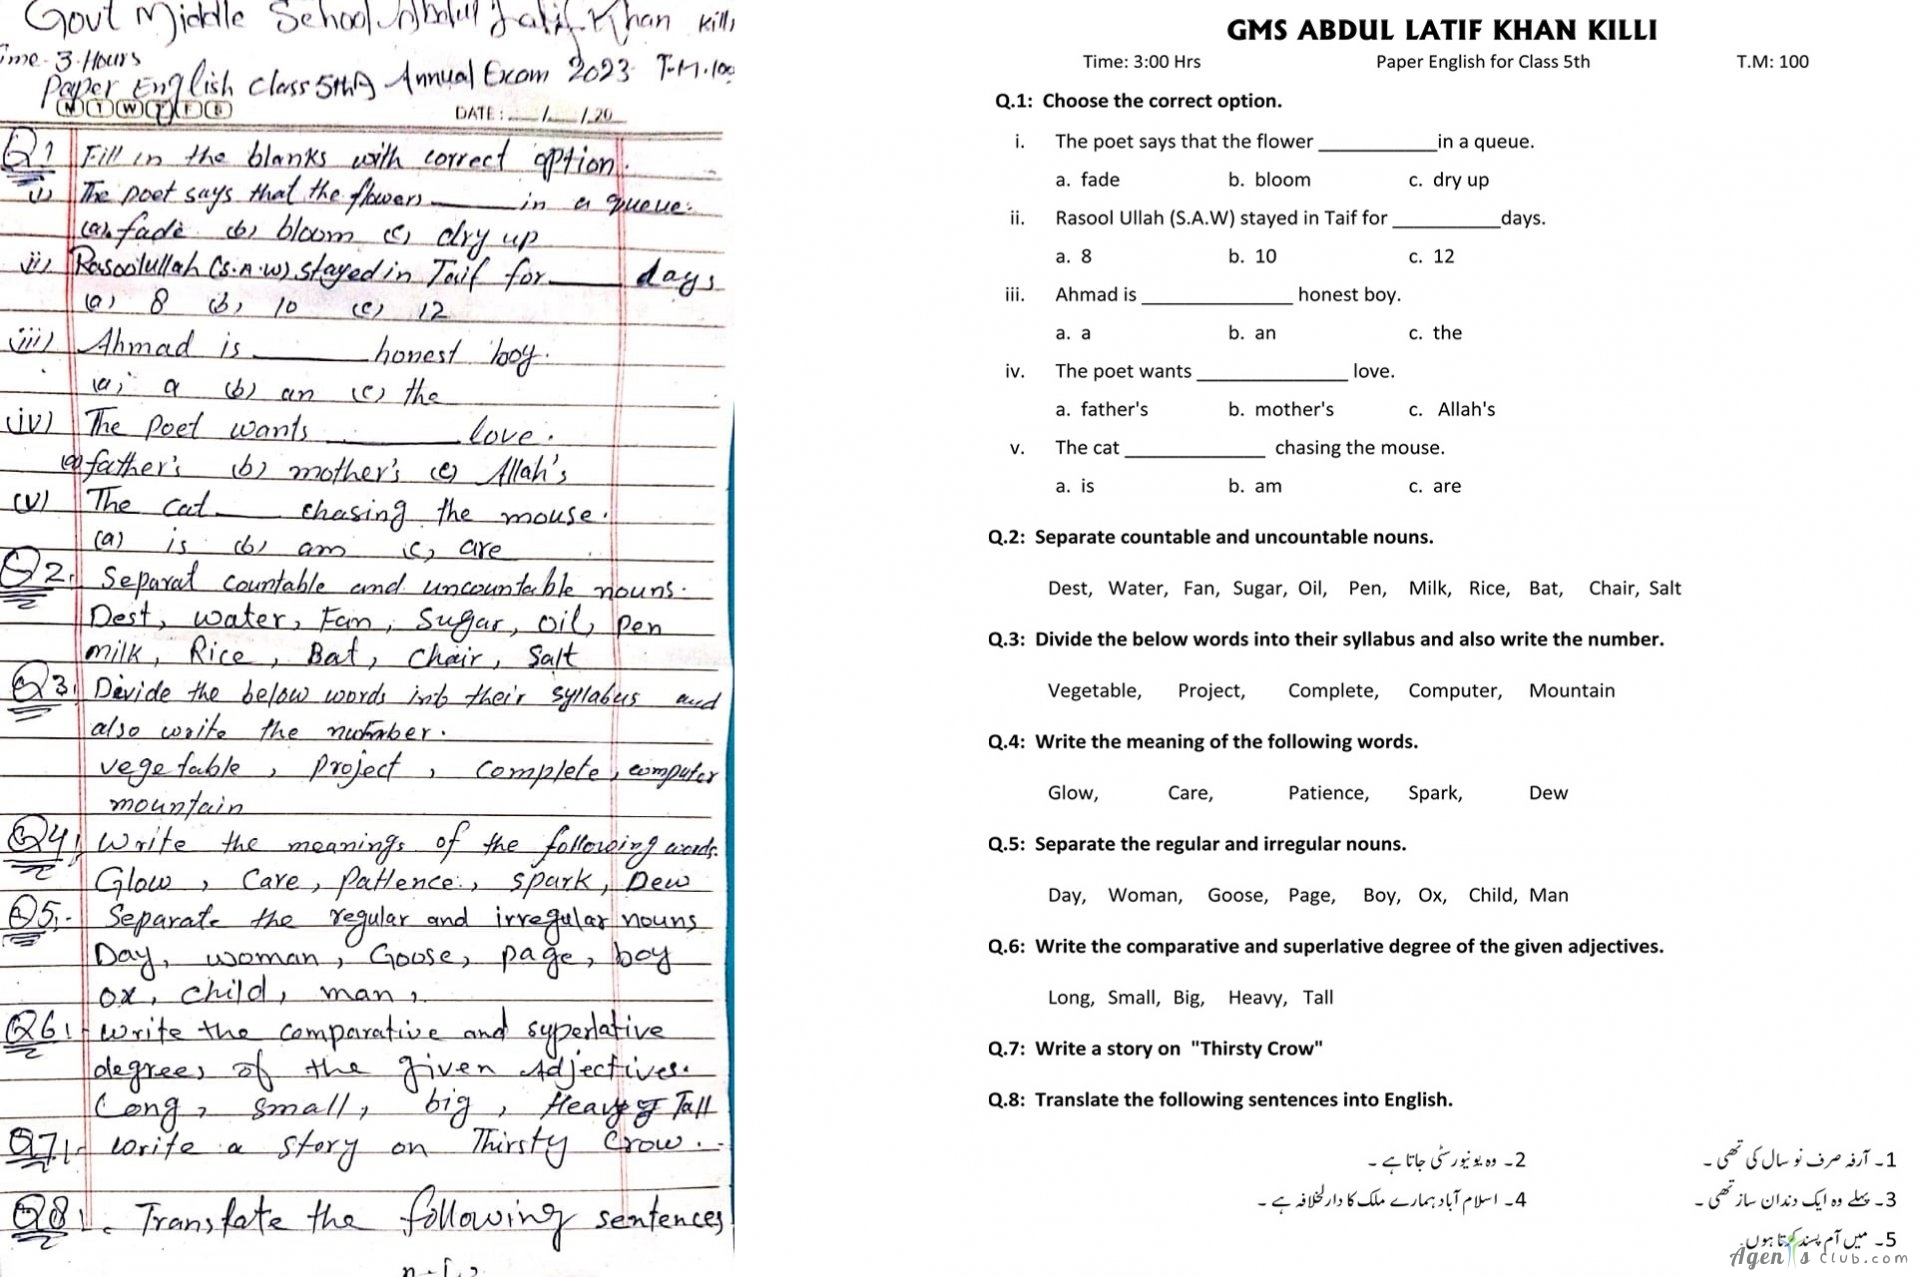 Govt Middle School Abdul Latif Khan Killi
Time 3 Hours
Paper English Class 5th Annual Exam 2023 T.M.100
M T W T F S
DATE: __/__/20__
Q1 Fill in the blanks with correct option.
(i) The poet says that the flowers ______ in a queue.
(a) fade (b) bloom (c) dry up
(ii) Rasoolullah (S.A.W) stayed in Taif for ______ days
(a) 8 (b) 10 (c) 12
(iii) Ahmad is ______ honest boy.
(a) a (b) an (c) the
(iv) The Poet wants ______ love.
(a) father's (b) mother's (c) Allah's
(v) The cat ______ chasing the mouse.
(a) is (b) am (c) are
Q2. Separat countable and uncountable nouns.
Dest, water, Fan, Sugar, oil, pen
milk, Rice, Bat, Chair, Salt
Q3. Divide the below words into their syllabus and
also write the number.
vegetable, project, complete, computer
mountain
Q4. Write the meanings of the following words.
Glow, Care, Patience, spark, Dew
Q5.- Separate the regular and irregular nouns
Day, woman, Goose, page, boy
ox, child, man,
Q6.- Write the comparative and superlative
degrees of the given Adjectives.
Long, small, big, Heavy, Tall
Q7.- Write a story on Thirsty Crow.
Q8. Translate the following sentences
GMS ABDUL LATIF KHAN KILLI
Time: 3:00 Hrs Paper English for Class 5th T.M: 100
Q.1: Choose the correct option.
i. The poet says that the flower ___________in a queue.
a. fade b. bloom c. dry up
ii. Rasool Ullah (S.A.W) stayed in Taif for __________days.
a. 8 b. 10 c. 12
iii. Ahmad is ______________ honest boy.
a. a b. an c. the
iv. The poet wants ______________ love.
a. father's b. mother's c. Allah's
v. The cat _____________ chasing the mouse.
a. is b. am c. are
Q.2: Separate countable and uncountable nouns.
Dest, Water, Fan, Sugar, Oil, Pen, Milk, Rice, Bat, Chair, Salt
Q.3: Divide the below words into their syllabus and also write the number.
Vegetable, Project, Complete, Computer, Mountain
Q.4: Write the meaning of the following words.
Glow, Care, Patience, Spark, Dew
Q.5: Separate the regular and irregular nouns.
Day, Woman, Goose, Page, Boy, Ox, Child, Man
Q.6: Write the comparative and superlative degree of the given adjectives.
Long, Small, Big, Heavy, Tall
Q.7: Write a story on "Thirsty Crow"
Q.8: Translate the following sentences into English.
1۔ آرفہ صرف نو سال کی تھی ۔ 2۔ وہ یونیورسٹی جاتا ہے ۔
3۔ پہلے وہ ایک دندان ساز تھی ۔ 4۔ اسلام آباد ہمارے ملک کا دارلخلافہ ہے ۔
5۔ میں آم پسند کرتا ہوں۔
Agents Club.com